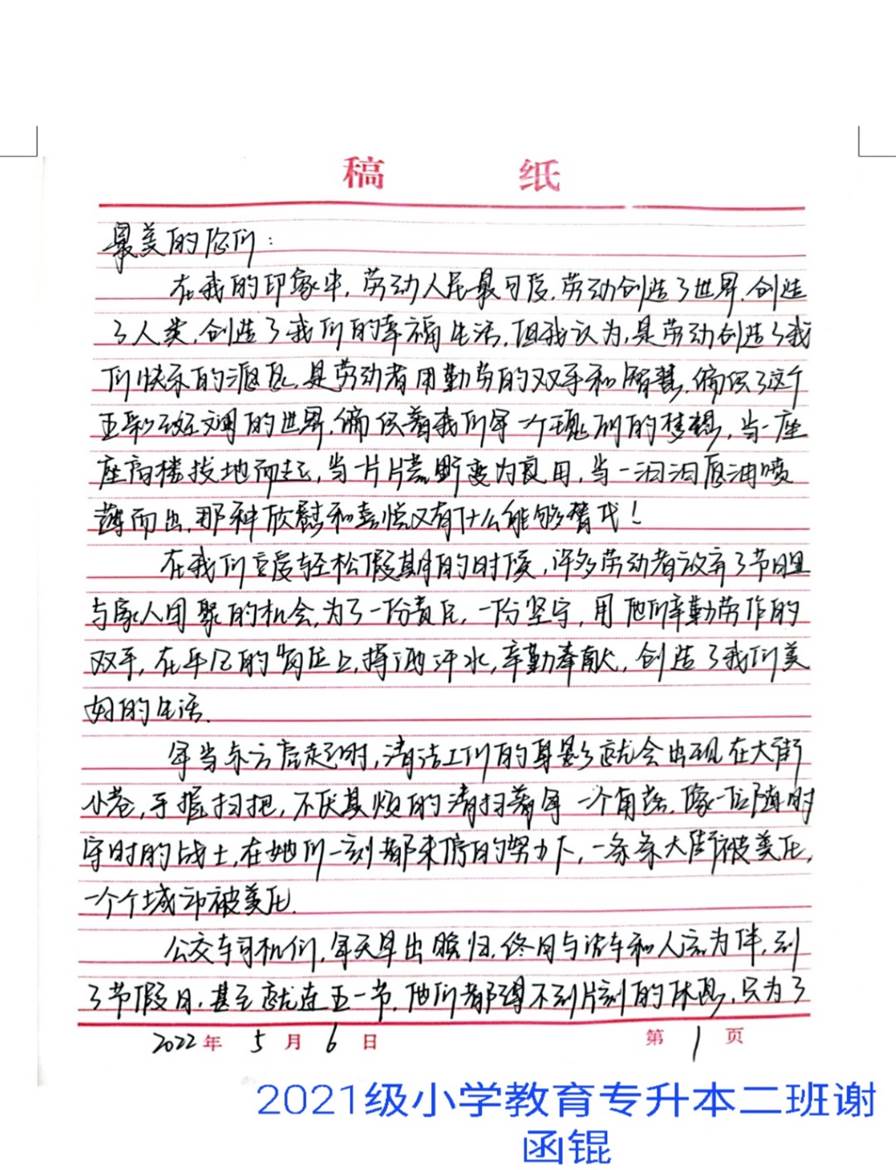 稿 纸
最美的你们：
在我的印象中，劳动人民最可爱，劳动创造了世界，创造
了人类，创造了我们的幸福生活，但我认为，是劳动创造了我
们快乐的源泉，是劳动者用勤劳的双手和智慧，编织了这个
五彩文明的世界，编织着我们每一个的梦想，当一座
座高楼拔地而起，当一片片荒野变为良田，当一汩汩原油喷
薄而出，那种欣慰和喜悦又有什么能够替代！
在我们享受轻松假期的时候，许多劳动者放弃了节日里
与家人团聚的机会，为了一份责任，一份坚守，用他们辛勤劳作的
双手，在平凡的岗位上，挥洒汗水，辛勤奉献，创造了我们美
好的生活。
每当东方启起时，清洁工们的身影就会出现在大街
小巷，手握扫把，不厌其烦的清扫着每一个角落，像一位随时
守时的战士，在她们一刻都未停的努力下，一条条大街被美化，
一个个城市被美化。
公交车司机们，每天早出晚归，终日与活车和人流为伴，到
了节假日，甚至就连五一节，他们都得不到片刻的休息，只为了
2022年 5月 6日 第 1 页
2021级小学教育专升本二班谢
函锟